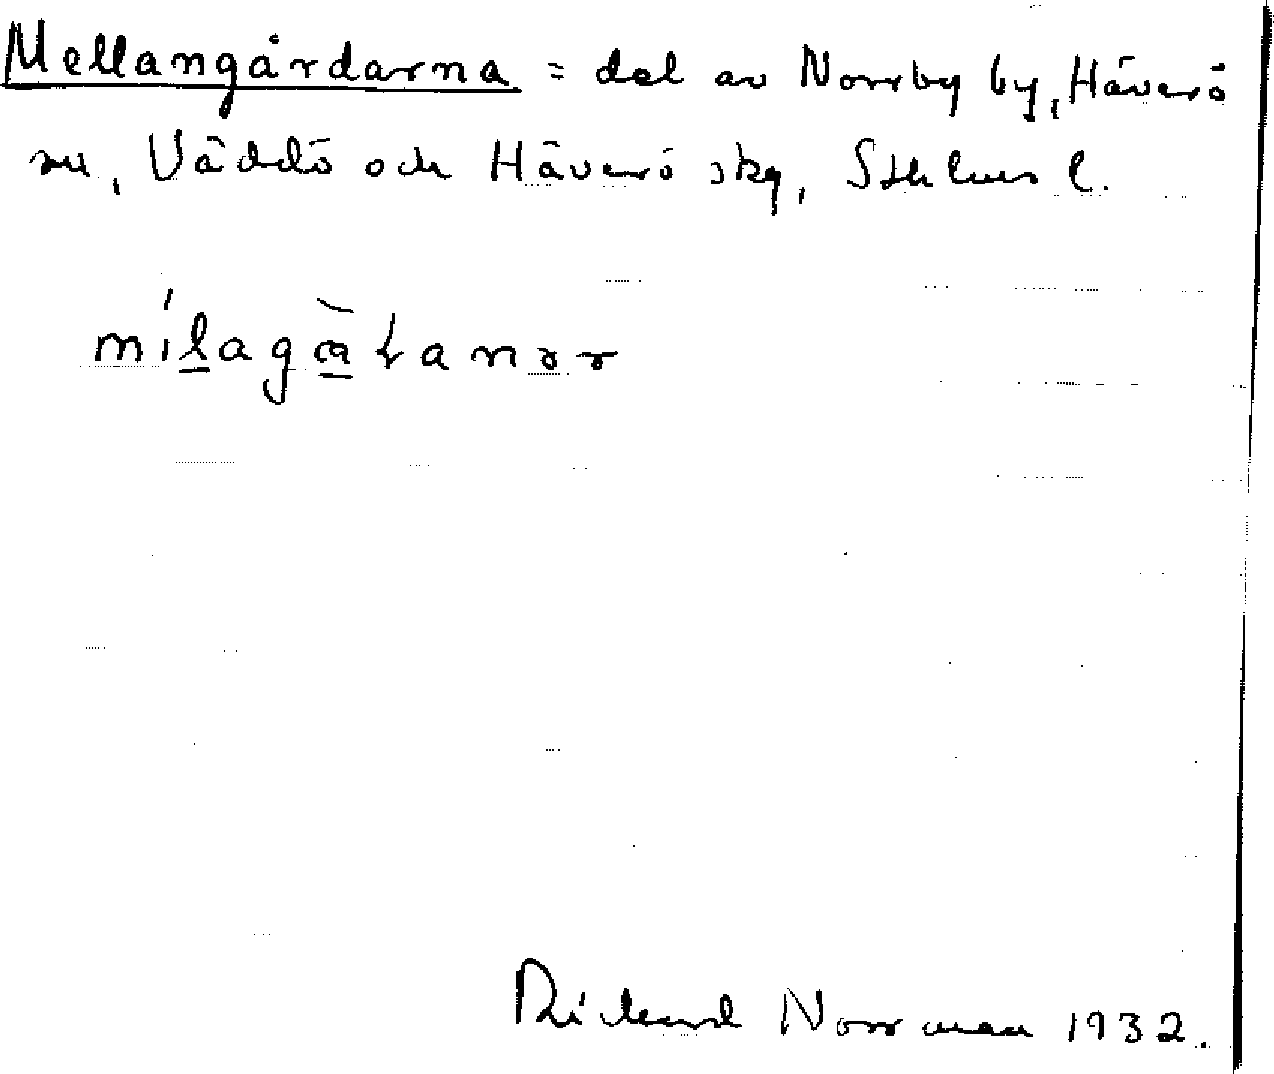 Mellangårdarna = del av Norrby by, Häverö
sn, Väddö och Häverö skg, Sthlms l.
Rickard Norrman 1932.